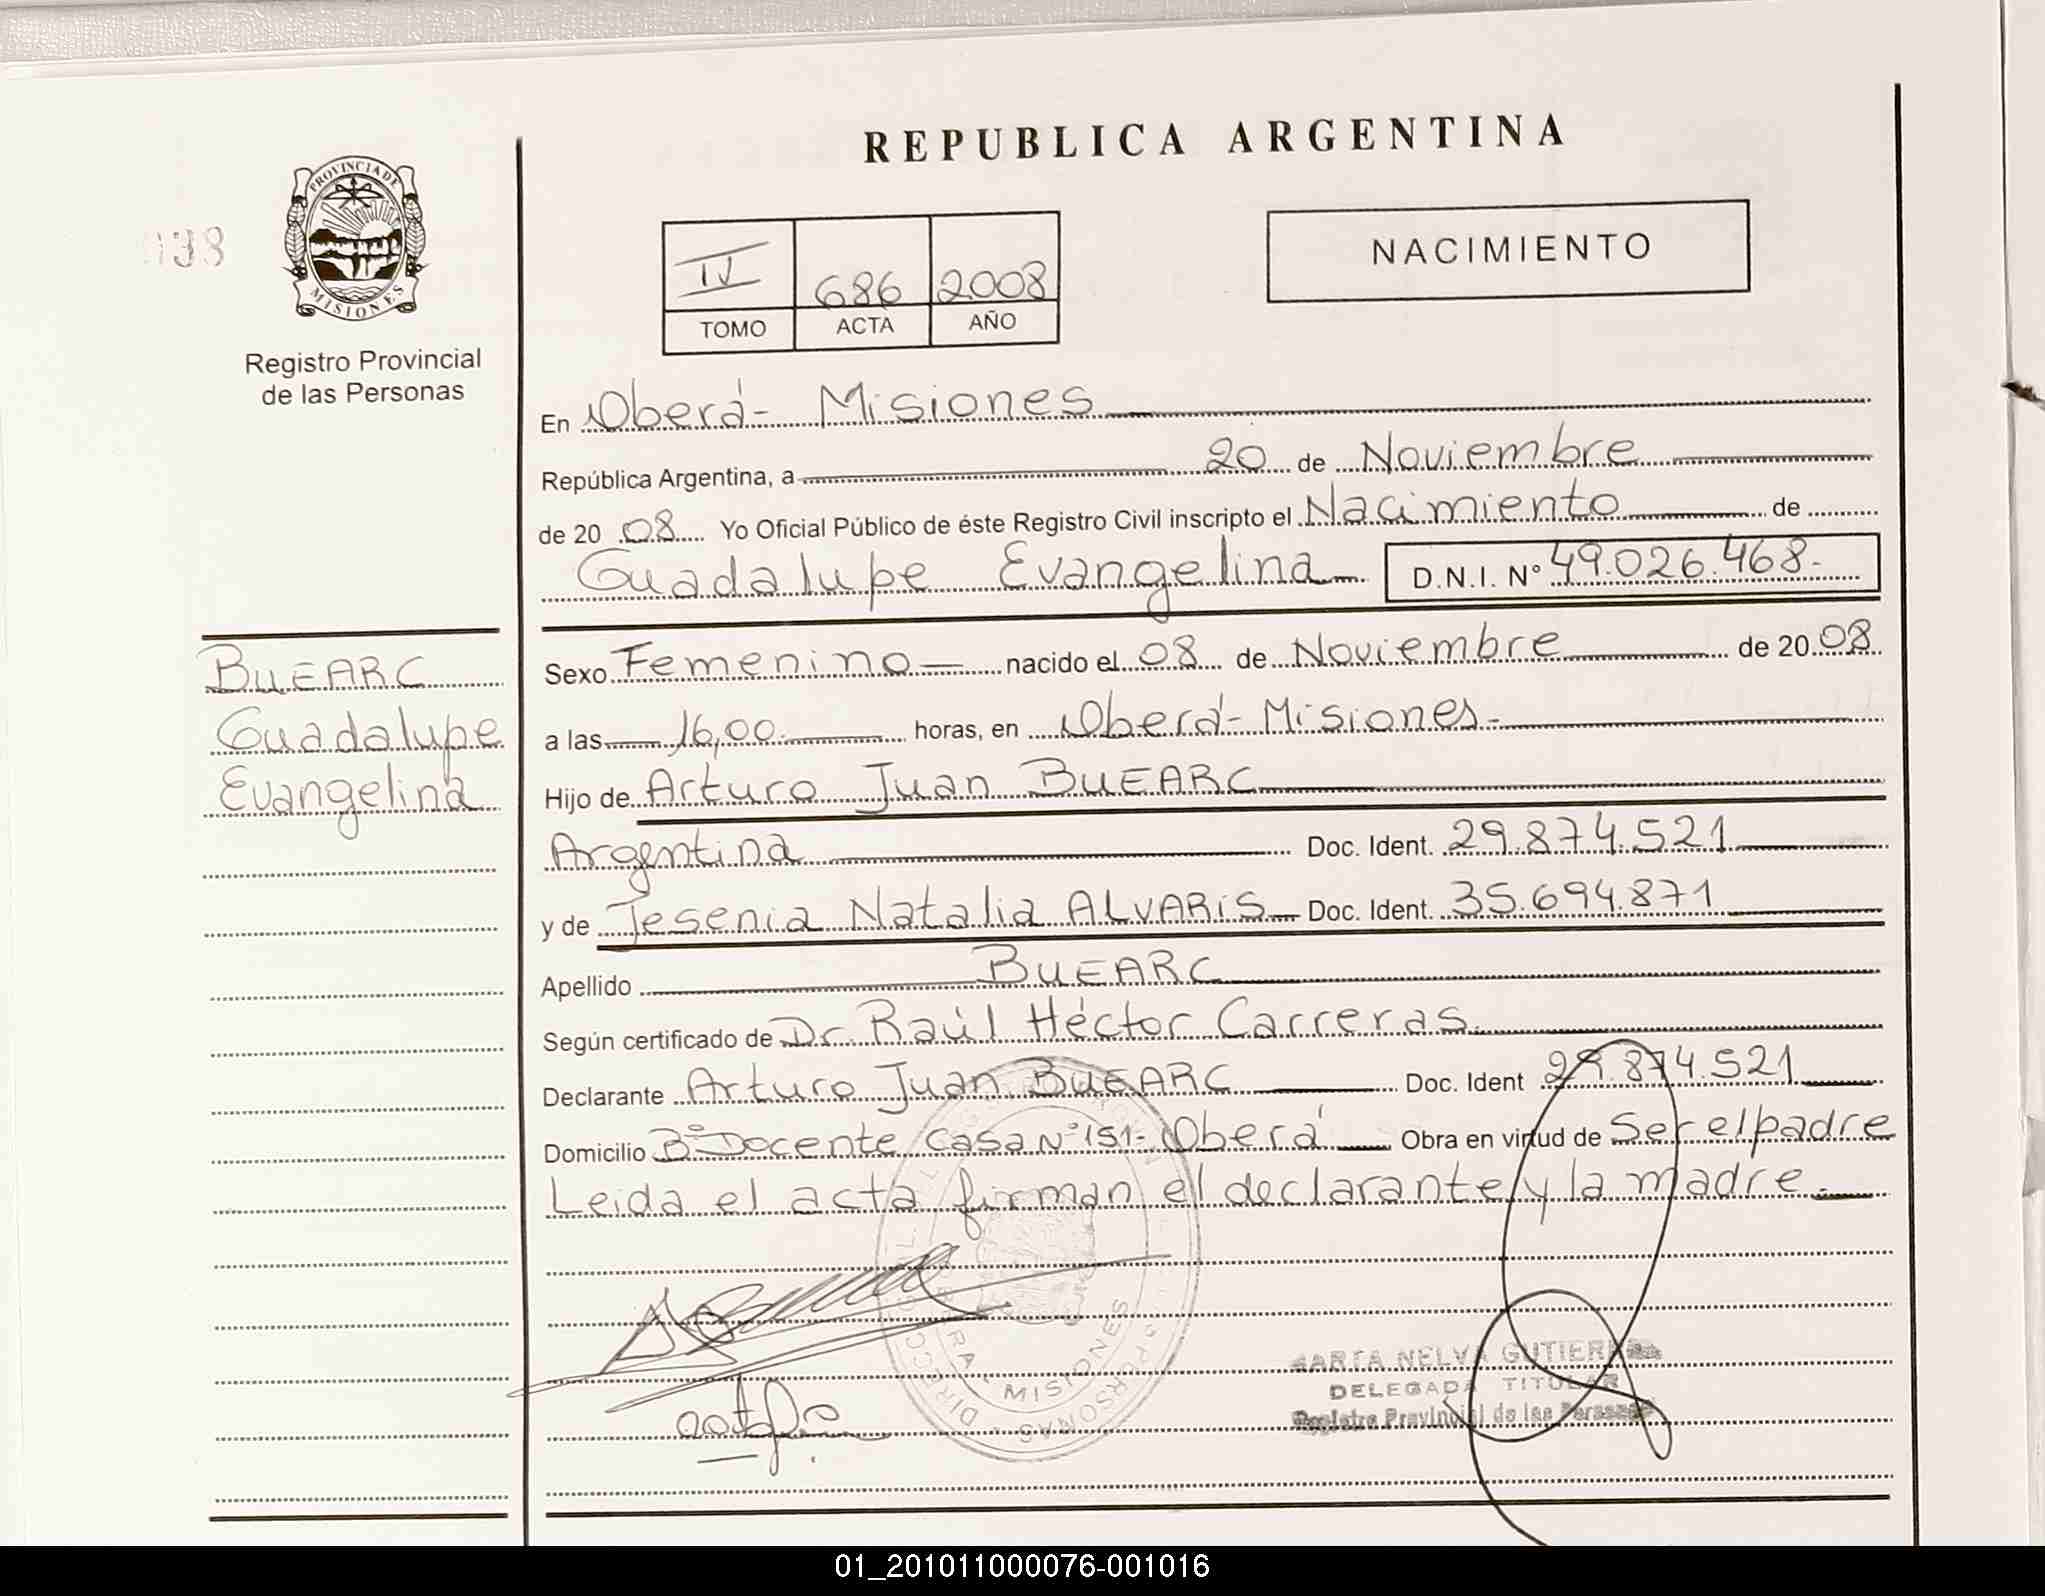 REPUBLICA ARGENTINA
PROVINCIA DE
MISIONES
138
Registro Provincial
de las Personas
IV 686 2008
TOMO ACTA AÑO
NACIMIENTO
En Oberá - Misiones
República Argentina, a 20 de Noviembre
de 20 08 Yo Oficial Público de éste Registro Civil inscripto el Nacimiento de
Guadalupe Evangelina D.N.I. Nº 49.026.468.-
BUEARC
Guadalupe
Evangelina
Sexo Femenino nacido el 08 de Noviembre de 20 08
a las 16,00 horas, en Oberá - Misiones.-
Hijo de Arturo Juan BUEARC
Argentina Doc. Ident. 29.874.521
y de Jesenia Natalia ALVARiS Doc. Ident. 35.694.871
Apellido BUEARC
Según certificado de Dr. Raúl Héctor Carreras.
Declarante Arturo Juan BUEARC Doc. Ident 29.874.521
Domicilio Bº Docente Casa Nº 151- Oberá Obra en virtud de Ser el padre
Leida el acta firman el declarante y la madre.-
MISIONES
MARTA NELVA GUTIERREZ
DELEGADA TITULAR
Registro Provincial de las Personas
01_201011000076-001016